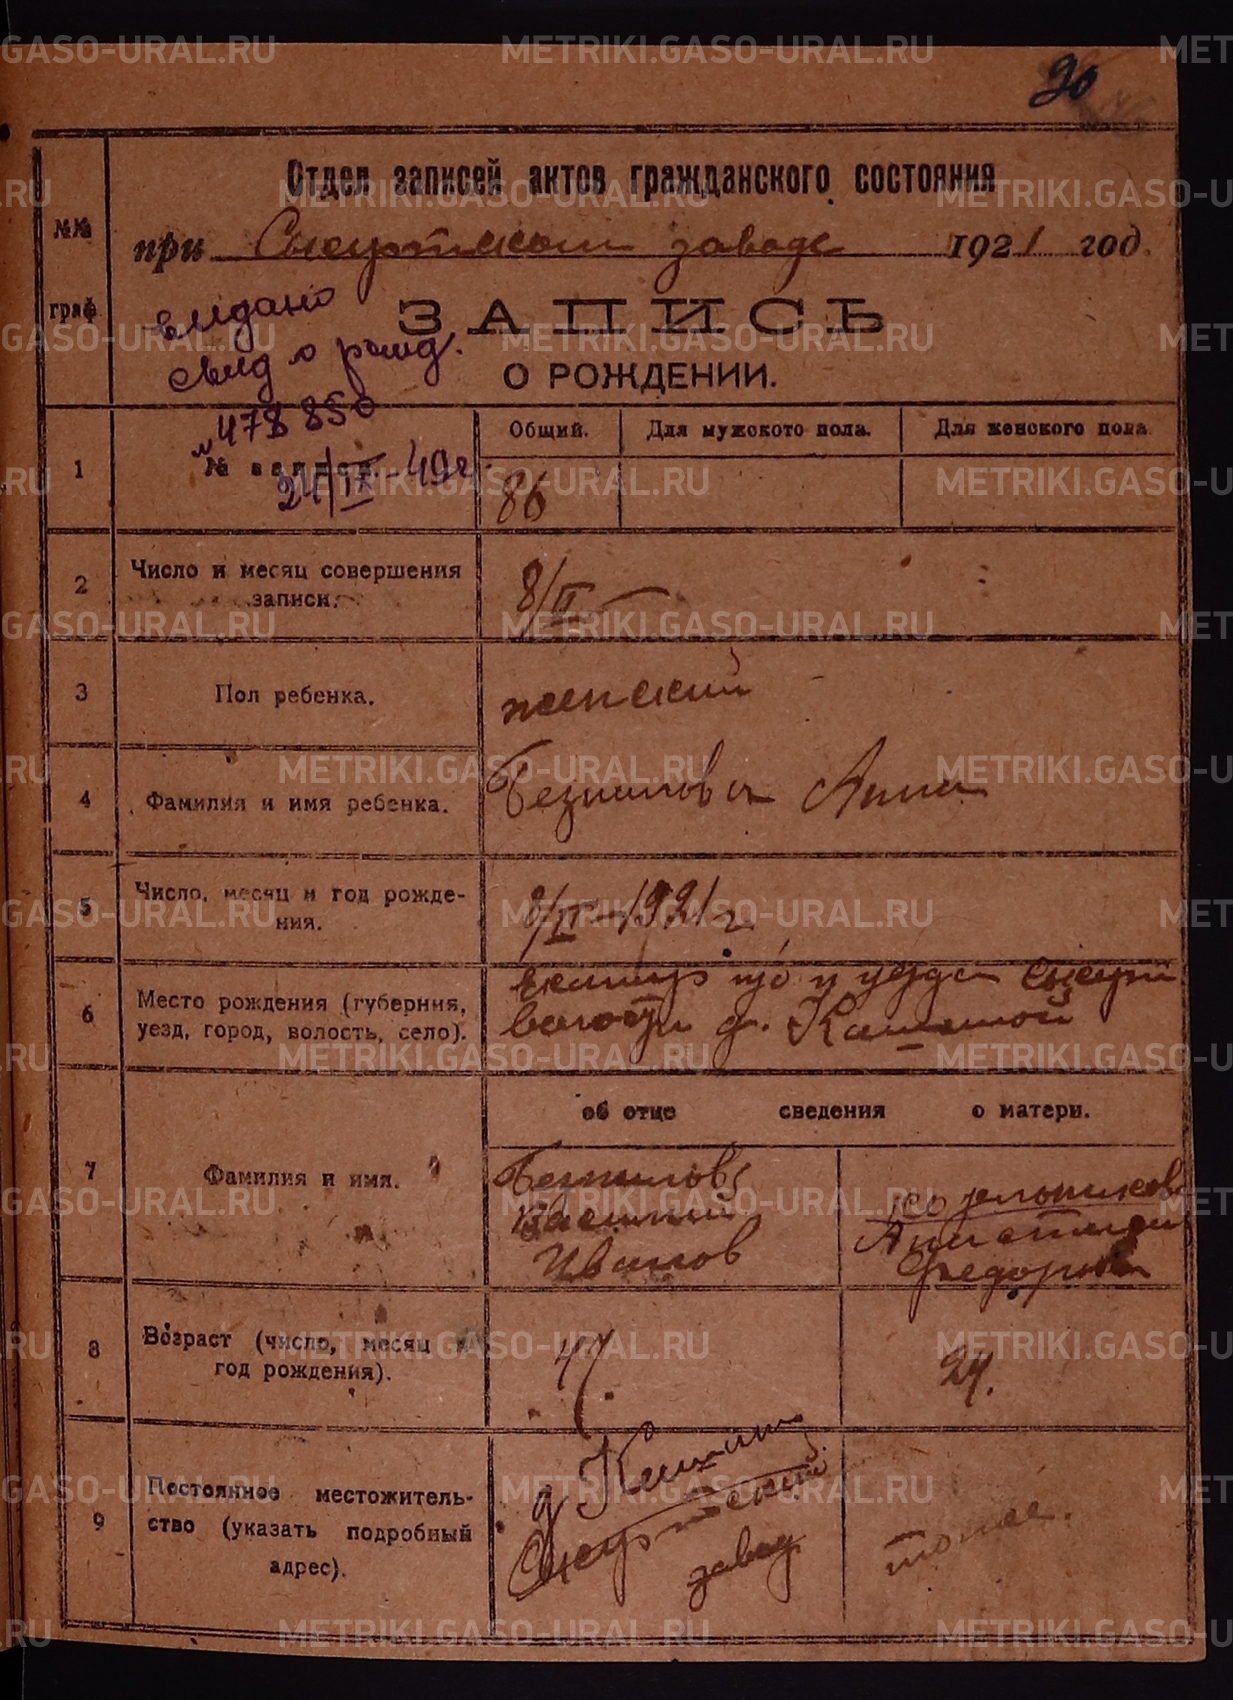 90
Отдел записей актов гражданского состояния
№№
граф
при Сысертском заводе 1921 год
выдано
свид о рожд.
ЗАПИСЬ
О РОЖДЕНИИ.
№ 478850
24/IX-49г
1 № записи. Общий. Для мужского пола. Для женского пола
86
2 Число и месяц совершения
записи.
8/II
3 Пол ребенка.
женский
4 Фамилия и имя ребенка.
Анна
5 Число, месяц и год рожде-
ния.
8/II-1921 г.
6 Место рождения (губерния,
уезд, город, волость, село).
Екатер губ и уезда Сысерт
волости д.
об отце сведения о матери.
7 Фамилия и имя.
Василий
Иванов
Анастасия
Федоров
8 Возраст (число, месяц и
год рождения).
47. 24.
9 Постоянное местожитель-
ство (указать подробный
адрес).
д
Сысертский
завод
тоже.
METRIKI.GASO-URAL.RU